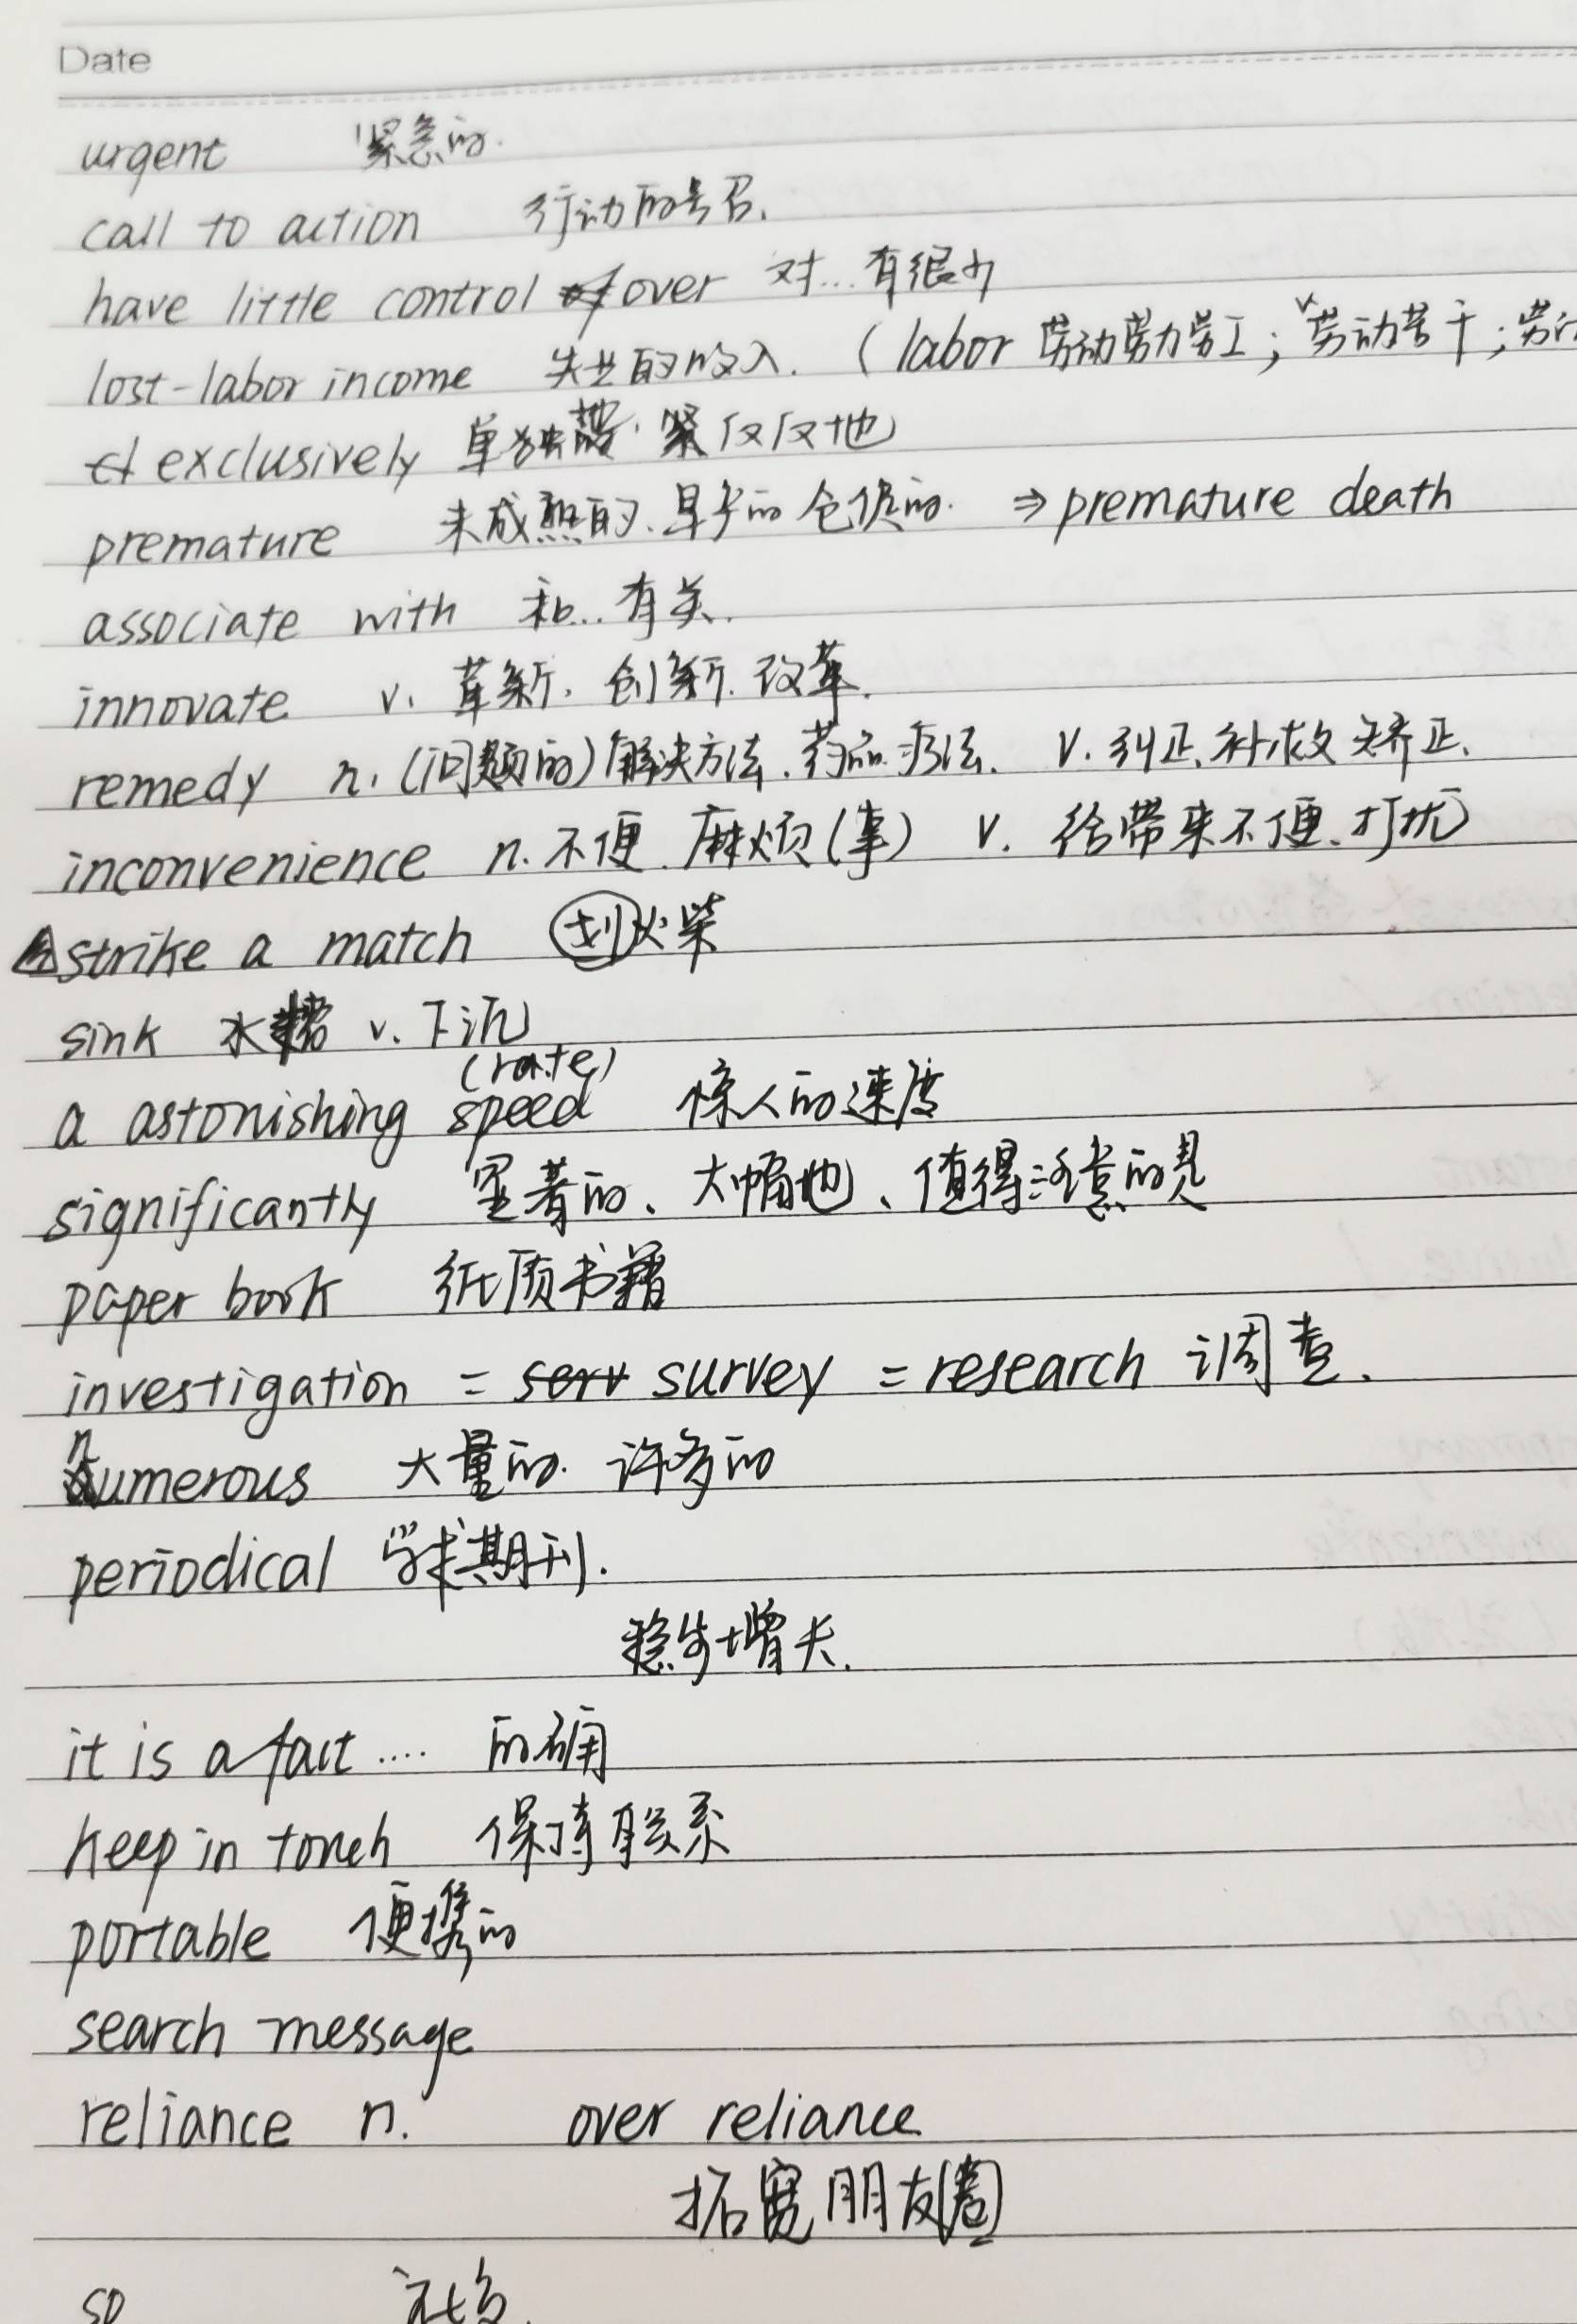 Date
urgent 紧急的.
call to action 行动的号召.
have little control over 对...有很少
lost-labor income 失业的收入. (labor 劳动劳力劳工; v劳动苦干;
exclusively 单独地. 仅仅地
premature 未成熟的.早产的仓促的. ⇒ premature death
associate with 和...有关.
innovate v. 革新. 创新. 改革.
remedy n. (问题的)解决方法.药品.疗法. V. 纠正.补救矫正.
inconvenience n. 不便.麻烦(事) V. 给带来不便.打扰
strike a match 划火柴
sink 水槽 v. 下沉
(rate)
a astonishing speed 惊人的速度
significantly 显著的、大幅地、值得注意的是
paper book 纸质书籍
investigation = survey = research 调查.
numerous 大量的. 许多的
periodical 学术期刊.
稳步增长.
it is a fact .... 的确
keep in touch 保持联系
portable 便携的
search message
reliance n. over reliance
拓宽朋友圈
so 社交.